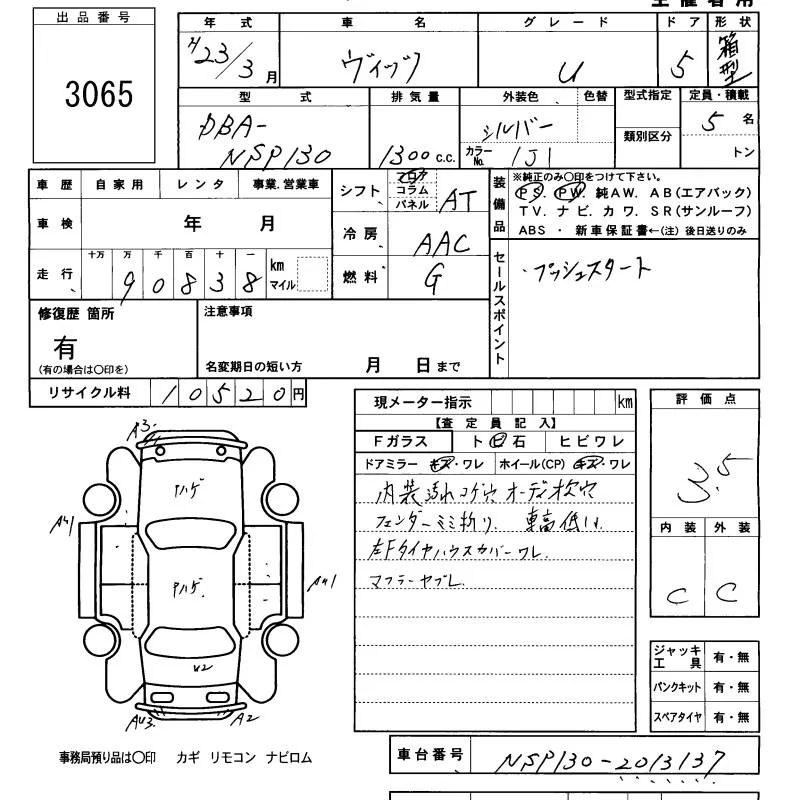 出品番号
3065
年式 車名 グレード ドア 形状
H23/3月 ヴィッツ U 5 箱型
型式 排気量 外装色 色替 型式指定 定員・積載
DBA-NSP130 1300c.c. シルバー カラーNo. 1J1 類別区分 5名 トン
車歴 自家用 レンタ 事業.営業車
車検 年 月
走行 十万 万 千 百 十 一
90838 km マイル
シフト フロア コラム パネル AT
冷房 AAC
燃料 G
装備品
※純正のみ〇印をつけて下さい。
PS. PW. 純AW. AB(エアバック)
TV. ナビ. カワ. SR(サンルーフ)
ABS ・ 新車保証書←(注) 後日送りのみ
セールスポイント
・プッシュスタート
修復歴 箇所
有
(有の場合は〇印を)
注意事項
名変期日の短い方 月 日まで
リサイクル料 10520円
現メーター指示 km
【査定員記入】
Fガラス ト ビ 石 ヒビワレ
ドアミラー キズ・ワレ ホイール(CP) キズ・ワレ
内装汚れ コゲ穴 オーディオ欠穴
フェンダーミミ折り 車高低い
左Fタイヤハウスカバーワレ
マフラーヤブレ
評価点
3.5
内装 外装
C C
ジャッキ工具 有・無
パンクキット 有・無
スペアタイヤ 有・無
A3
Pハゲ
AU1
Pハゲ
AU1
U2
AU3 A2
事務局預り品は〇印 カギ リモコン ナビロム
車台番号 NSP130-2013137